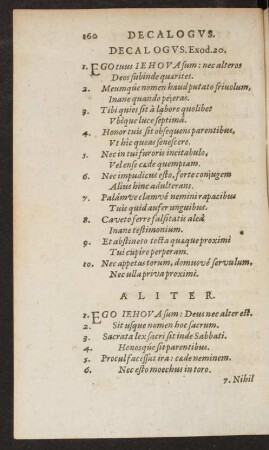 160 DECALOGVS.
DECALOGVS. Exod. 20.
1. EGO tuus IEHOVA sum: nec alteros
Deos subinde quæsites.
2. Meumque nomen haud putato frivolum,
Inane quando pejeras.
3. Tibi quies sit à labore quolibet
Vbique luce septima.
4. Honor tuis sit obsequens parentibus,
Vt hîc queas senescere.
5. Nec in tui furoris incitabulo,
Velense cæde quempiam.
6. Nec impudicus esto, forte conjugem
Alius hinc adulterans.
7. Palámve clamvé nemini rapacibus
Tuis quid aufer unguibus.
8. Caveto ferre falsitatis aleâ
Inane testimonium.
9. Et abstineto tecta quæque proximi
Tui cupire perperam.
10. Nec appetas torum, domusvé servulum,
Nec ulla priva proximi.
ALITER.
1. EGO IEHOVA sum: Deus nec alter est.
2. Sit usque nomen hoc sacrum.
3. Sacrata lex sacri sit inde Sabbati.
4. Honosque sit parentibus.
5. Procul facessat ira: cæde neminem.
6. Nec esto moechus in toro.
7. Nihil